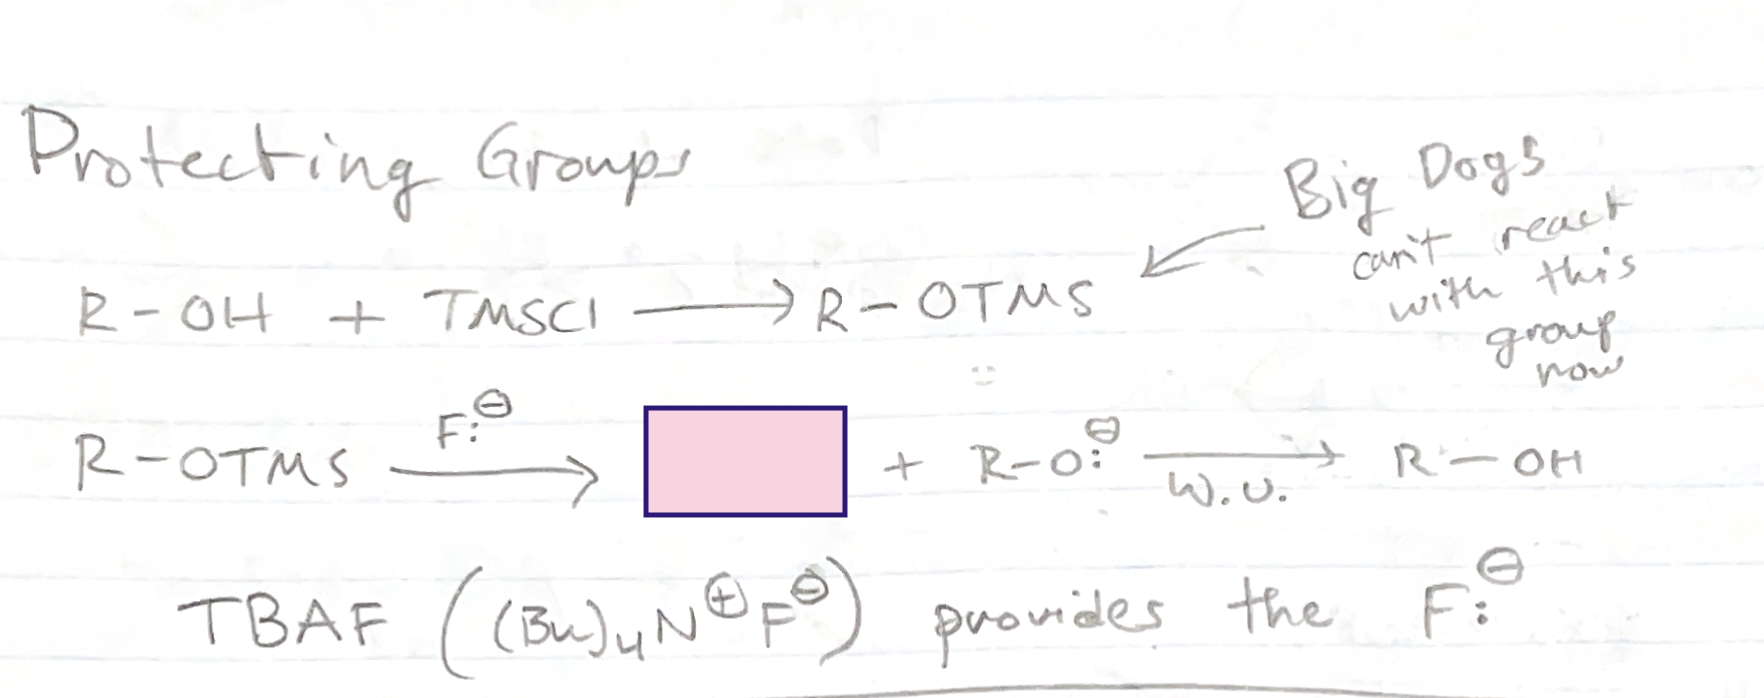 Protecting Groups
Big Dogs
can't react
with this
group
now
R-OH + TMSCl ⟶ R-OTMS
R-OTMS F:⊖ ⟶ + R-O:⊖ ⟶ W.U. R-OH
TBAF ((Bu)₄N⊕F⊖) provides the F:⊖